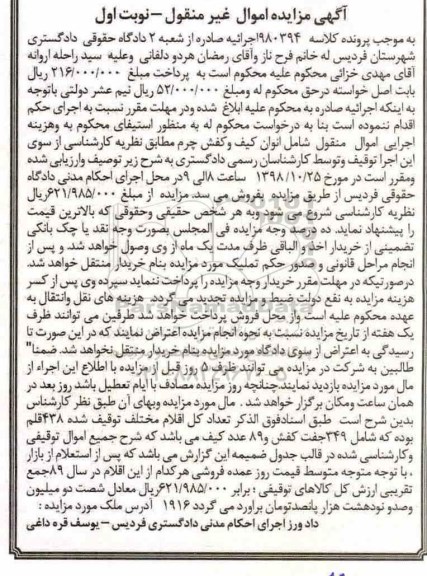 آگهی مزایده اموال غیر منقول – نوبت اول
به موجب پرونده کلاسه ۹۸۰۳۹۴اجرائیه صادره از شعبه ۲ دادگاه حقوقی دادگستری
شهرستان فردیس له خانم فرح ناز وآقای رمضان هردو دلفانی وعلیه سید راحله اروانه
آقای مهدی خزائی محکوم علیه محکوم است به پرداخت مبلغ ۲۱۶/۰۰۰/۰۰۰ ریال
بابت اصل خواسته درحق محکوم له ومبلغ ۵۲/۰۰۰/۰۰۰ ریال نیم عشر دولتی باتوجه
به اینکه اجرائیه صادره به محکوم علیه ابلاغ شده ودر مهلت مقرر نسبت به اجرای حکم
اقدام ننموده است بنا به درخواست محکوم له به منظور استیفای محکوم به وهزینه
اجرایی اموال منقول شامل انوان کیف وکفش چرم مطابق نظریه کارشناسی از سوی
این اجرا توقیف وتوسط کارشناسان رسمی دادگستری به شرح زیر توصیف وارزیابی شده
ومقرر است در مورخ ۱۳۹۸/۱۰/۲۵ ساعت ۸الی ۹در محل اجرای احکام مدنی دادگاه
حقوقی فردیس از طریق مزایده بفروش می رسد. مزایده از مبلغ ۶۲۱/۹۸۵/۰۰۰ریال
نظریه کارشناسی شروع می شود وبه هر شخص حقیقی وحقوقی که بالاترین قیمت
را پیشنهاد نماید. ده درصد وجه مزایده فی المجلس بصورت وجه نقد یا چک بانکی
تضمینی از خریدار اخذ و الباقی ظرف مدت یک ماه از وی وصول خواهد شد. و پس از
انجام مراحل قانونی وصدور حکم تملیک مورد مزایده بنام خریدار منتقل خواهد شد.
درصورتیکه در مهلت مقرر خریدار وجه مزایده را پرداخت ننماید سپرده وی پس از کسر
هزینه مزایده به نفع دولت ضبط و مزایده تجدید می گردد. هزینه های نقل وانتقال به
عهده محکوم علیه است واز محل فروش پرداخت خواهد شد. طرفین می توانند ظرف
یک هفته از تاریخ مزایده نسبت به نحوه انجام مزایده اعتراض نمایند که در این صورت تا
رسیدگی به اعتراض از سوی دادگاه مورد مزایده بنام خریدار منتقل نخواهد شد. ضمنا"
طالبین به شرکت در مزایده می توانند ظرف ۵ روز قبل از مزایده با اطلاع این اجراء از
مال مورد مزایده بازدید نمایند.چنانچه روز مزایده مصادف با ایام تعطیل باشد روز بعد در
همان ساعت ومکان برگزار خواهد شد . مال مورد مزایده وبهای آن طبق نظر کارشناس
بدین شرح است طبق اسنادفوق الذکر تعداد کل اقلام مختلف توقیف شده ۴۳۸قلم
بوده که شامل ۳۴۹جفت کفش و۸۹ عدد کیف می باشد که شرح جمیع اموال توقیفی
وکارشناسی شده در قالب جدول ضمیمه این گزارش می باشد که پس از استعلام از بازار
، با توجه متوجه متوسط قیمت روز عمده فروشی هرکدام از این اقلام در سال ۸۹جمع
تقریبی ارزش کل کالاهای توقیفی ؛ برابر ۶۲۱/۹۸۵/۰۰۰ریال معادل شصت دو میلیون
وصدو نودهشت هزار پانصدتومان براورد می گردد ۱۹۱۶ آدرس ملک مورد مزایده :
داد ورز اجرای احکام مدنی دادگستری فردیس – یوسف قره داغی